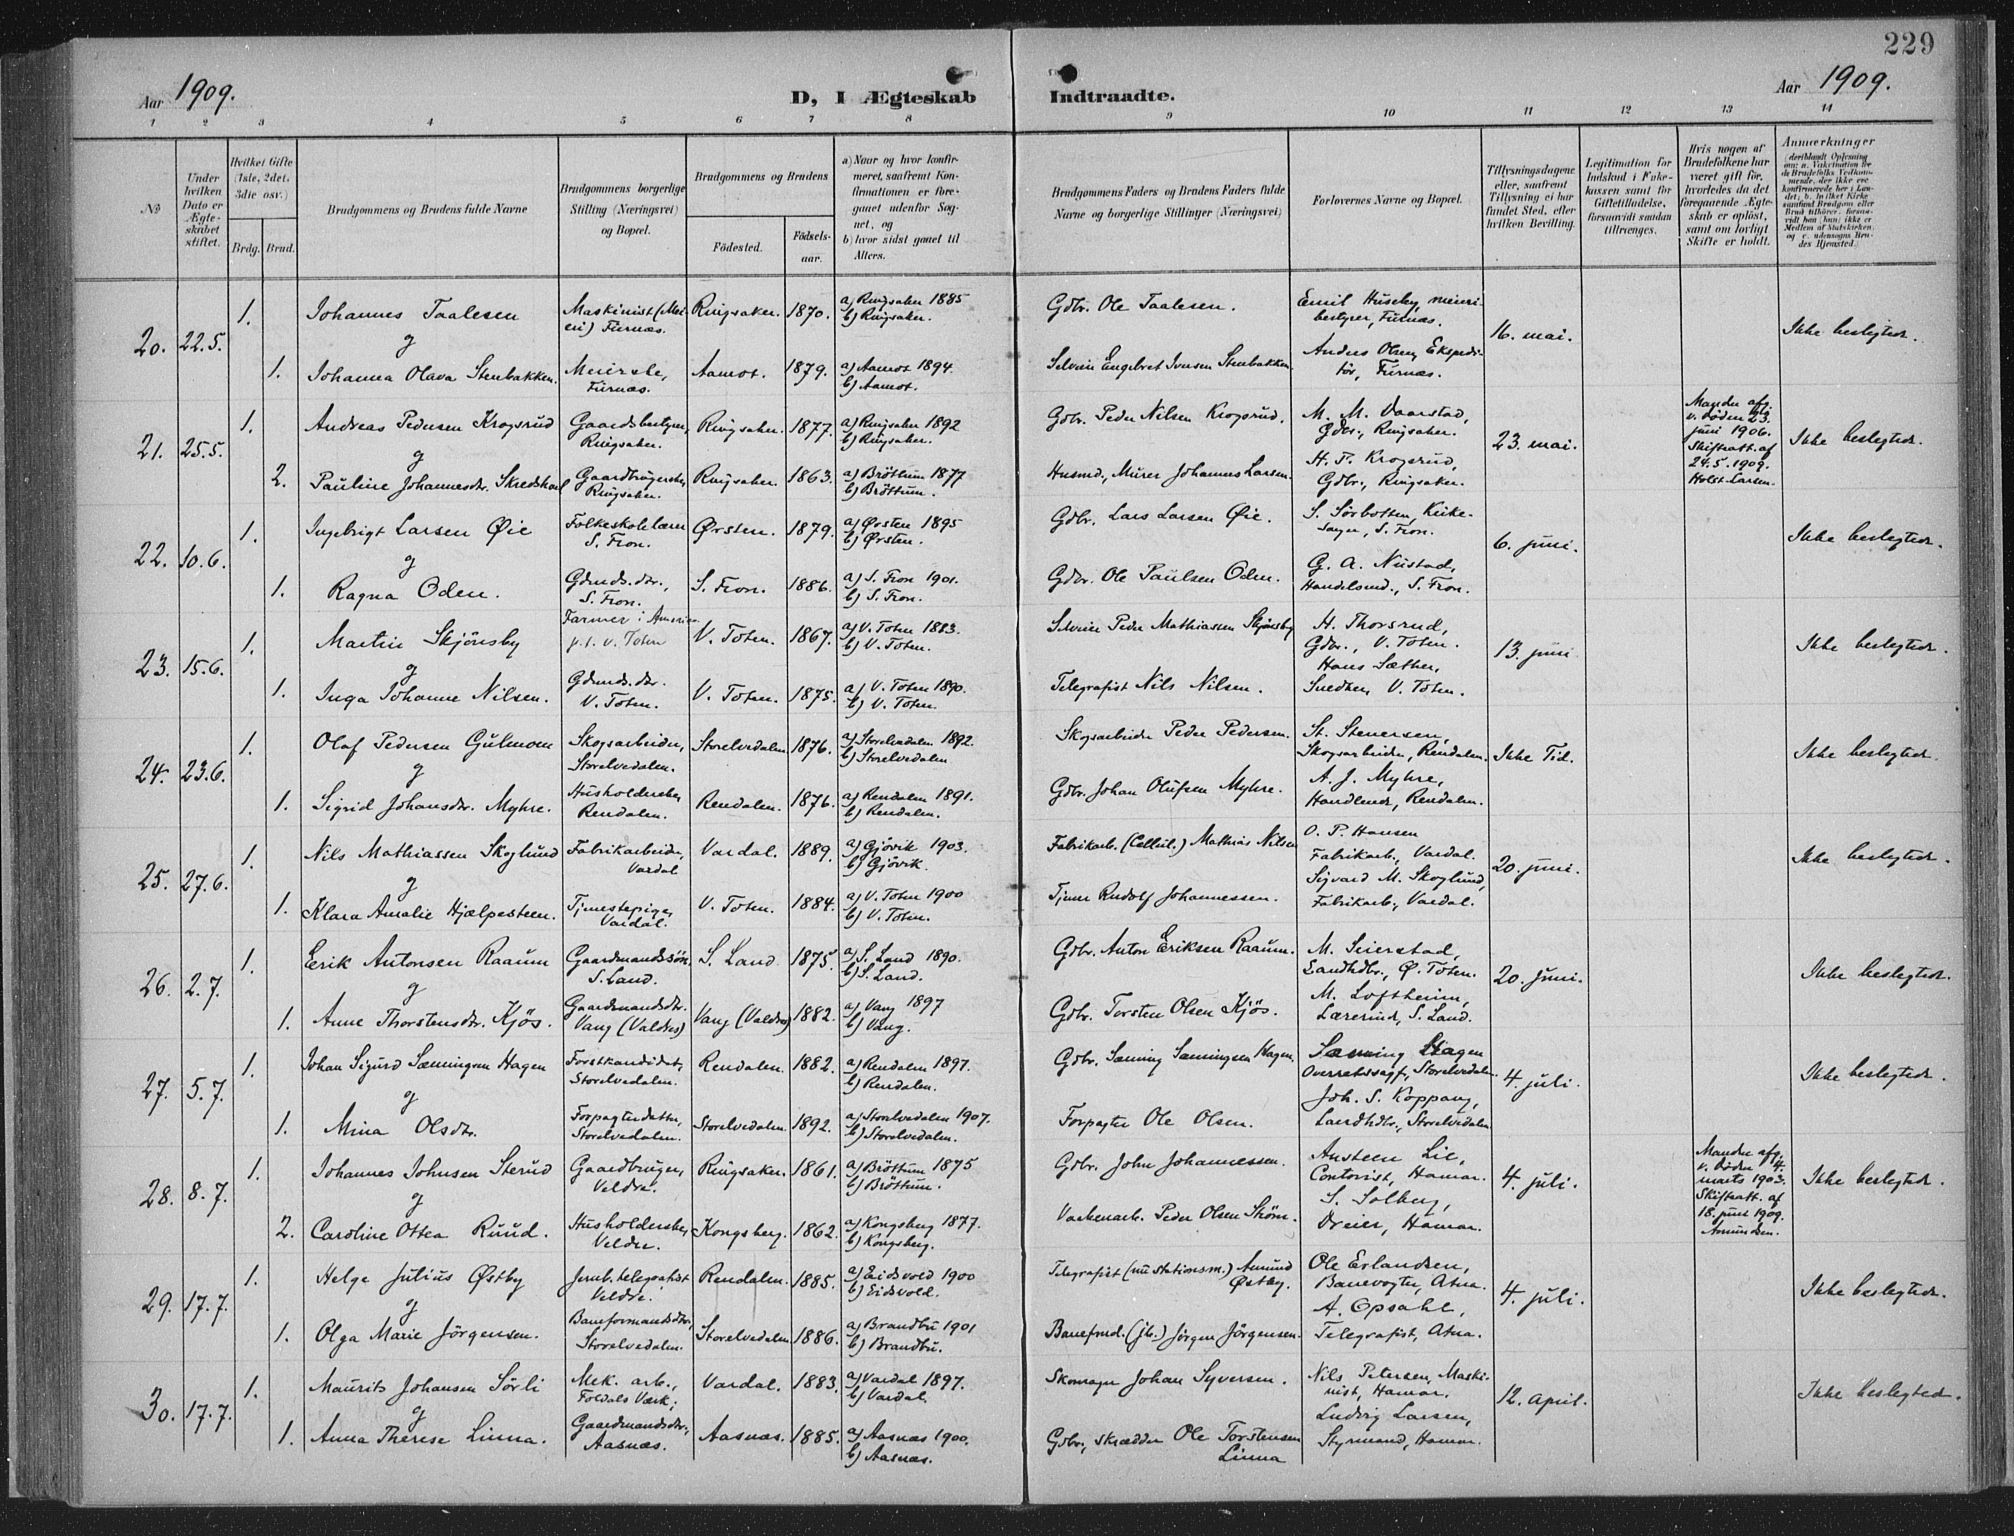 229
Aar 1909. D, I Ægteskab Indtraadte. Aar 1909.
1 2 3 4 5 6 7 8 9 10 11 12 13 14
No
Under hvilken Dato er Ægteskabet stiftet.
Hvilket Gifte (1ste, 2det, 3die osv.)
Brdg. Brud.
Brudgommens og Brudens fulde Navne
Brudgommens borgerlige Stilling (Næringsvei) og Bopæl.
Brudgommens og Brudens
Fødested. Fødselsaar.
a) Naar og hvor konfirmeret, saafremt Konfirmationen er foregaaet udenfor Sognet, og
b) hvor sidst gaaet til Alters.
Brudgommens Faders og Brudens Faders fulde Navne og borgerlige Stillinger (Næringsvei)
Forlovernes Navne og Bopæl.
Tillysningsdagene eller, saafremt Tillysning ei har fundet Sted, efter hvilken Bevilling.
Legitimation for Indskud i Enkekassen samt for Giftetilladelse, forsaavidt saadan tiltrænges.
Hvis nogen af Brudefolkene har været gift før, hvorledes da det foregaaende Ægteskab er opløst, samt om lovligt Skifte er holdt.
Anmærkninger
20. 22.5. 1. Johannes Taalesen Maskinist (Meieri) Furnæs. Ringsaker. 1870. a) Ringsaker 1885 b) Ringsaker. Gdbr. Ole Taalesen. Emil Huseby, meieribestyrer, Furnæs. 16. mai. Ikke beslegtede.
og
1. Johanna Olava Stenbakken. Meierske, Furnæs. Aamot. 1879. a) Aamot 1894. b) Aamot. Selveier Engebret Iversen Stenbakken. Anders Olsen, Ekspeditør, Furnæs.
21. 25.5. 1. Andreas Pedersen Krogsrud Gaardsbestyrer, Ringsaker. Ringsaker. 1877. a) Ringsaker 1892 b) Ringsaker. Gdbr. Peder Nilsen Krogsrud. M. M. Vaarstad, Gdbr., Ringsaker. 23. mai. Manden afg. v. Døden 23. juni 1906. Skifteatt. af 24.5.1909. Holst-Larsen. Ikke beslegtede.
og
2. Pauline Johannesdr. Gaardbrugerske, Ringsaker. Ringsaker. 1863. a) Brøttum 1877 b) Brøttum. Husmd., Murer Johannes Larsen. H. P. Krogsrud, Gdbr., Ringsaker.
22. 10.6. 1. Ingebrigt Larsen Øie Folkeskolelærer S. Fron. Ørsten. 1879. a) Ørsten 1895 b) Ørsten. Gdbr. Lars Larsen Øie. S. Sørbotten, Kirkesanger, S. Fron. 6. juni. Ikke beslegtede.
og
1. Ragna Oden. Gdmds.dtr., S. Fron. S. Fron. 1886. a) S. Fron 1901. b) S. Fron. Gdbr. Ole Paulsen Oden. G. A. Nustad, Handelsmd., S. Fron.
23. 15.6. 1. Martin Skjönsby Farmer i Amerika p.t. V. Toten V. Toten. 1867. a) V. Toten 1883. b) V. Toten. Selveier Peder Mathiassen Skjønsby H. Thorsrud, Gdbr., V. Toten. 13. juni Ikke beslegtede.
og
1. Inga Johanne Nilsen. Gdmds.dtr. V. Toten. V. Toten. 1875. a) V. Toten 1890. b) V. Toten. Telegrafist Nils Nilsen. Hans Sæther, Snedker, V. Toten.
24. 23.6. 1. Olaf Pedersen Gulmoen Skogsarbeider, Storelvedalen. Storelvedalen 1876. a) Storelvedalen 1892. b) Storelvedalen Skogsarbeider Peder Pedersen. St. Stenersen, Skogsarbeider, Rendalen. Ikke Tid. Ikke beslegtede.
og
1. Sigrid Johansdtr. Myhre. Husholderske, Rendalen. Rendalen. 1876. a) Rendalen 1891. b) Rendalen. Gdbr. Johan Olufsen Myhre. A. J. Myhre, Handlende, Rendalen.
25. 27.6. 1. Nils Mathiassen Skoglund Fabrikarbeider, Vardal Vardal. 1889. a) Gjøvik 1903. b) Gjøvik. Fabrikarb. (Cellul.) Mathias Nilsen O. P. Hansen Fabrikarb., Vardal. 20. juni. Ikke beslegtede.
og
1. Klara Amalie Hjælpesteen. Tjenestepige, Vardal. V. Toten. 1884. a) V. Toten 1900 b) V. Toten. Tjener Rudolf Johannessen. Sigvard M. Skoglund, Fabrikarb., Vardal.
26. 2.7. 1. Erik Antonsen Raaum Gaardmandssøn, S. Land. S. Land 1875. a) S. Land 1890. b) S. Land. Gdbr. Anton Eriksen Raaum. M. Seierstad, Landhdlr., Ø. Toten. 20. juni. Ikke beslegtede.
og
1. Anne Thorstensdtr. Kjös. Gaardmandsdtr. Vang (Valdres) Vang (Valdres) 1882. a) Vang 1897 b) Vang. Gdbr. Torsten Olsen Kjös. M. Loftheim, Lærerinde, S. Land.
27. 5.7. 1. Johan Sigurd Sæmingsen Hagen Forstkandidat, Storelvedalen. Rendalen. 1882. a) Rendalen 1897. b) Rendalen. Gdbr. Sæming Sæmingsen Hagen. Sæming Hagen Overretssagf., Storelvedalen. 4. juli. Ikke beslegtede.
og
1. Mina Olsdtr. Forpagterdatter, Storelvedalen. Storelvedalen. 1892. a) Storelvedalen 1907. b) Storelvedalen. Forpagter Ole Olsen. Joh. S. Koppang, Landhdlr., Storelvedalen
28. 8.7. 1. Johannes Johnsen Sterud Gaardbruger, Veldre. Ringsaker. 1861. a) Brøttum 1875 b) Brøttum. Gdbr. John Johannessen. Austeen Lie, Contorist, Hamar. 4. juli. Manden afg. v. Døden 4. marts 1903. Skifteatt. af 18. juni 1909. Amundsen. Ikke beslegtede.
og
2. Caroline Ottea Ruud. Husholderske, Veldre. Kongsberg. 1862. a) Kongsberg 1877. b) Kongsberg. Peder Olsen S. Solberg, Dreier, Hamar.
29. 17.7. 1. Helge Julius Østby Jernb. telegrafist Veldre. Rendalen. 1885. a) Eidsvold 1900 b) Eidsvold. Telegrafist (nu stationsm.) Amund Østby. Ole Erlandsen, Banevogter, Atna. 4. juli. Ikke beslegtede.
og
1. Olga Marie Jörgensen. Baneformandsdtr., Storelvedalen. Storelvedalen 1886. a) Brandbu 1901 b) Brandbu. Banefrmd. (jb.) Jørgen Jörgensen. A. Opsahl, Telegrafist, Atna.
30. 17.7. 1. Maurits Johansen Sörli Mek. arb., Foldals Værk; Vardal. 1883. a) Vardal 1897. b) Vardal. Skomager Johan Syversen. Nils Petersen, Maskinist, Hamar. 12. April. Ikke beslegtede.
og
1. Anna Therese Linna. Gaardmandsdtr., Aasnæs. Aasnæs. 1885. a) Aasnæs 1900. b) Aasnæs. Gdbr., skrædder Ole Torstensen Linna Ludvig Larsen, Styrmand, Hamar.